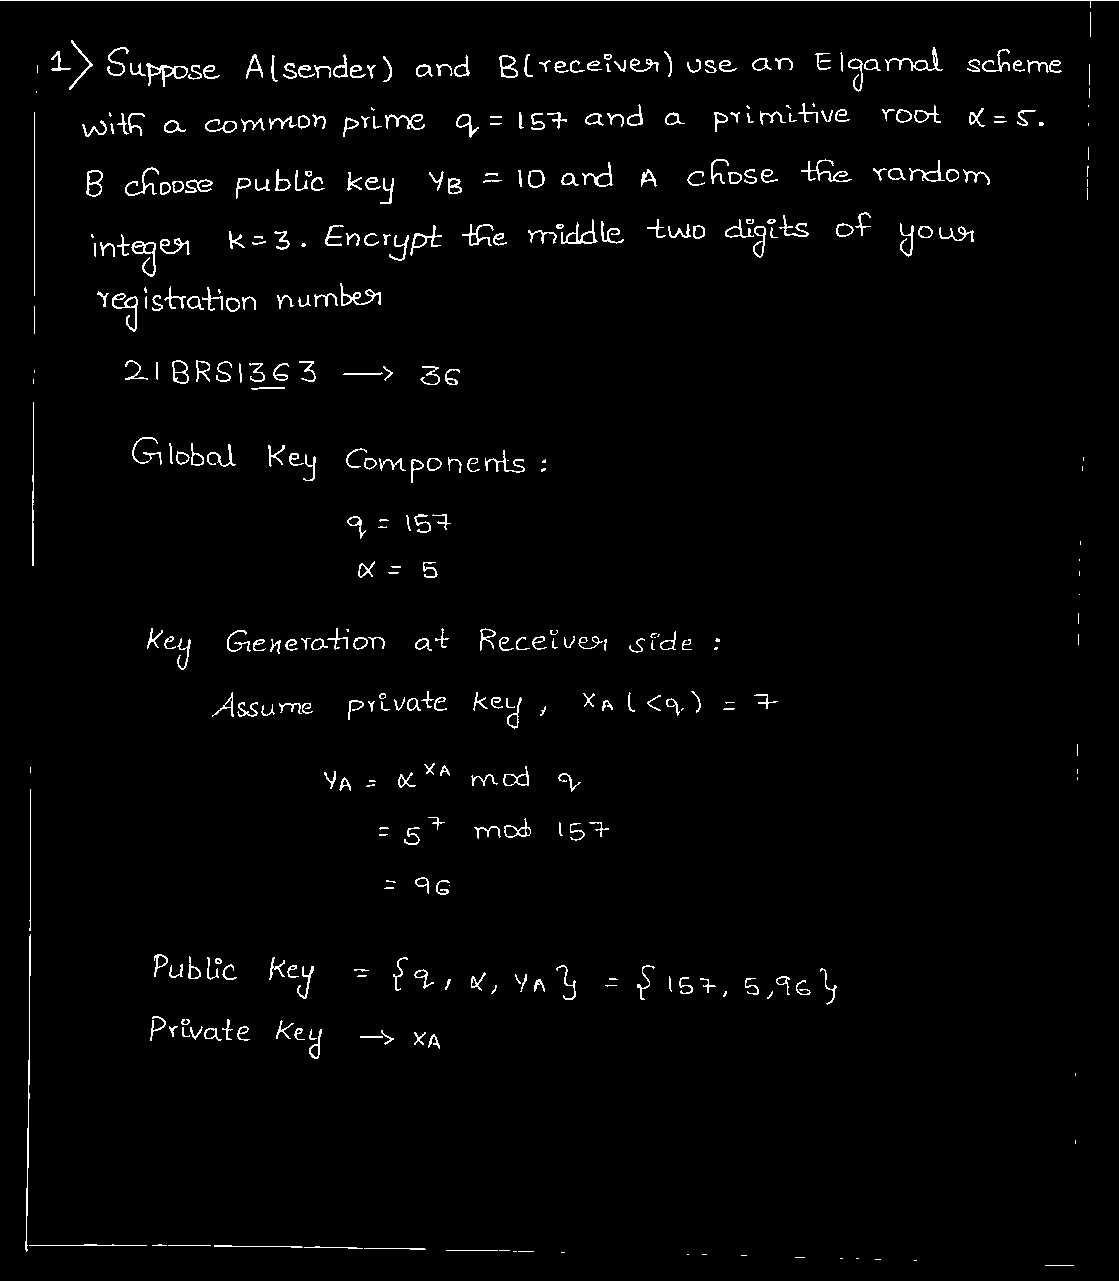 1) Suppose A(sender) and B(receiver) use an Elgamal scheme
with a common prime q = 157 and a primitive root α = 5.
B choose public key YB = 10 and A chose the random
integer K = 3. Encrypt the middle two digits of your
registration number
21BRS1363 → 36
Global Key Components :
q = 157
α = 5
Key Generation at Receiver side :
Assume private key, XA (<q) = 7
YA = α^XA mod q
= 5^7 mod 157
= 96
Public Key = {q, α, YA} = {157, 5, 96}
Private Key → XA